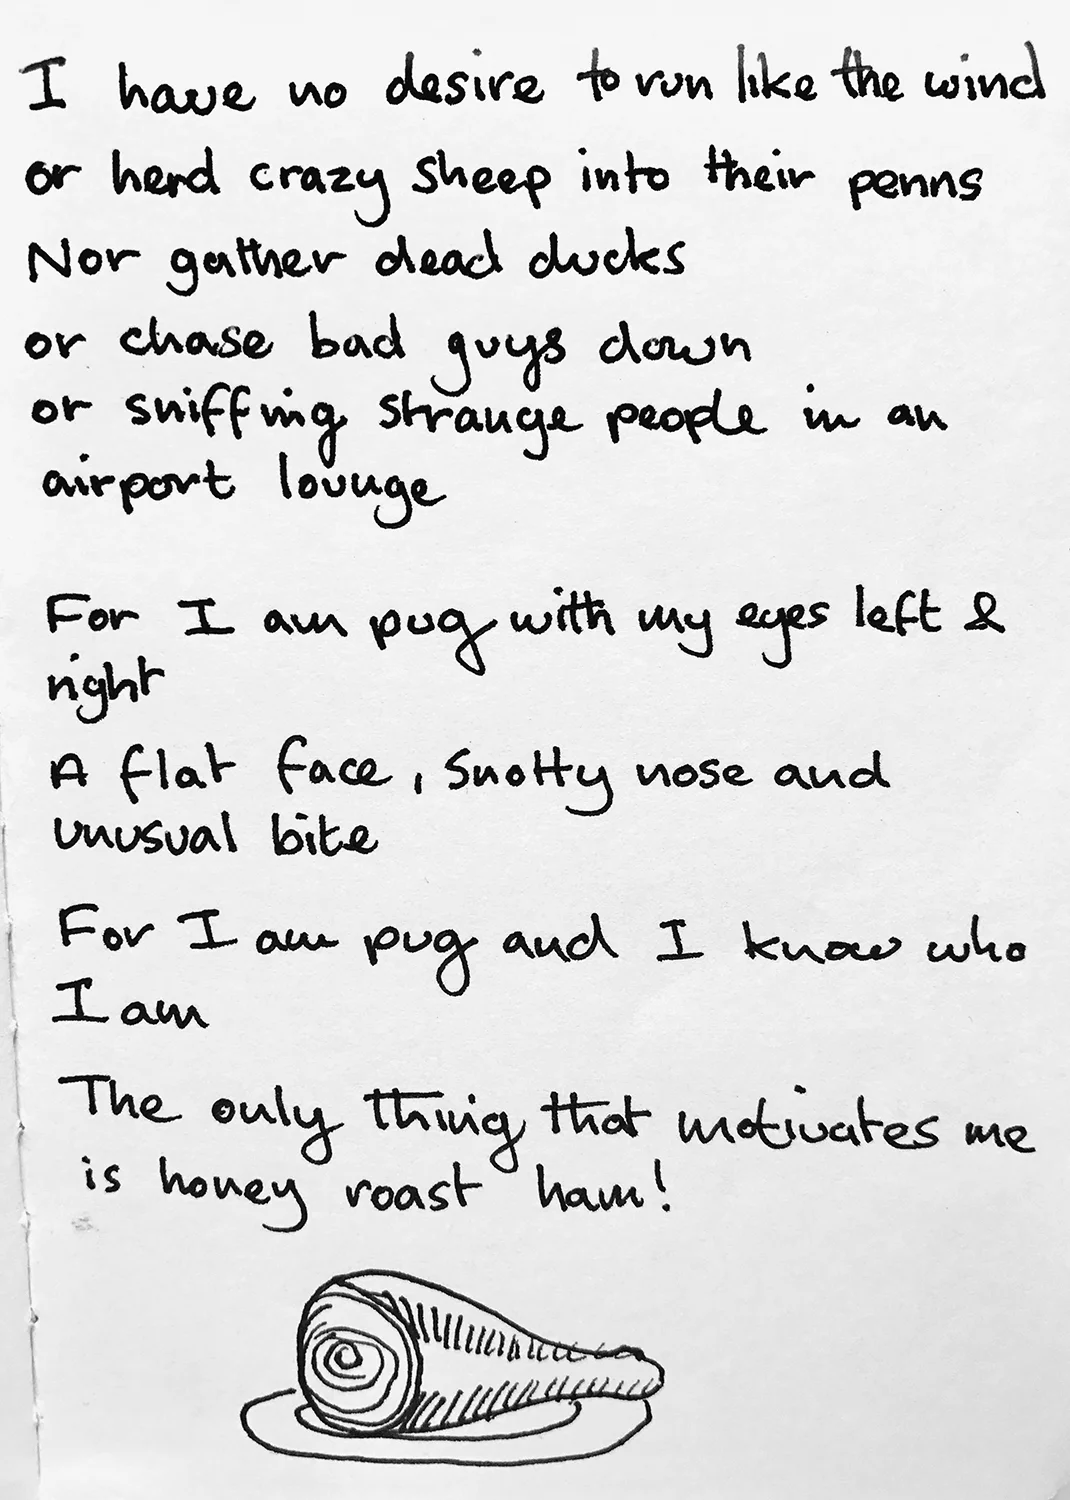 I have no desire to run like the wind
or herd crazy sheep into their penns
Nor gather dead ducks
or chase bad guys down
or sniffing strange people in an
airport lounge
For I am pug with my eyes left &
right
A flat face, Snotty nose and
unusual bite
For I am pug and I know who
I am
The only thing that motivates me
is honey roast ham!